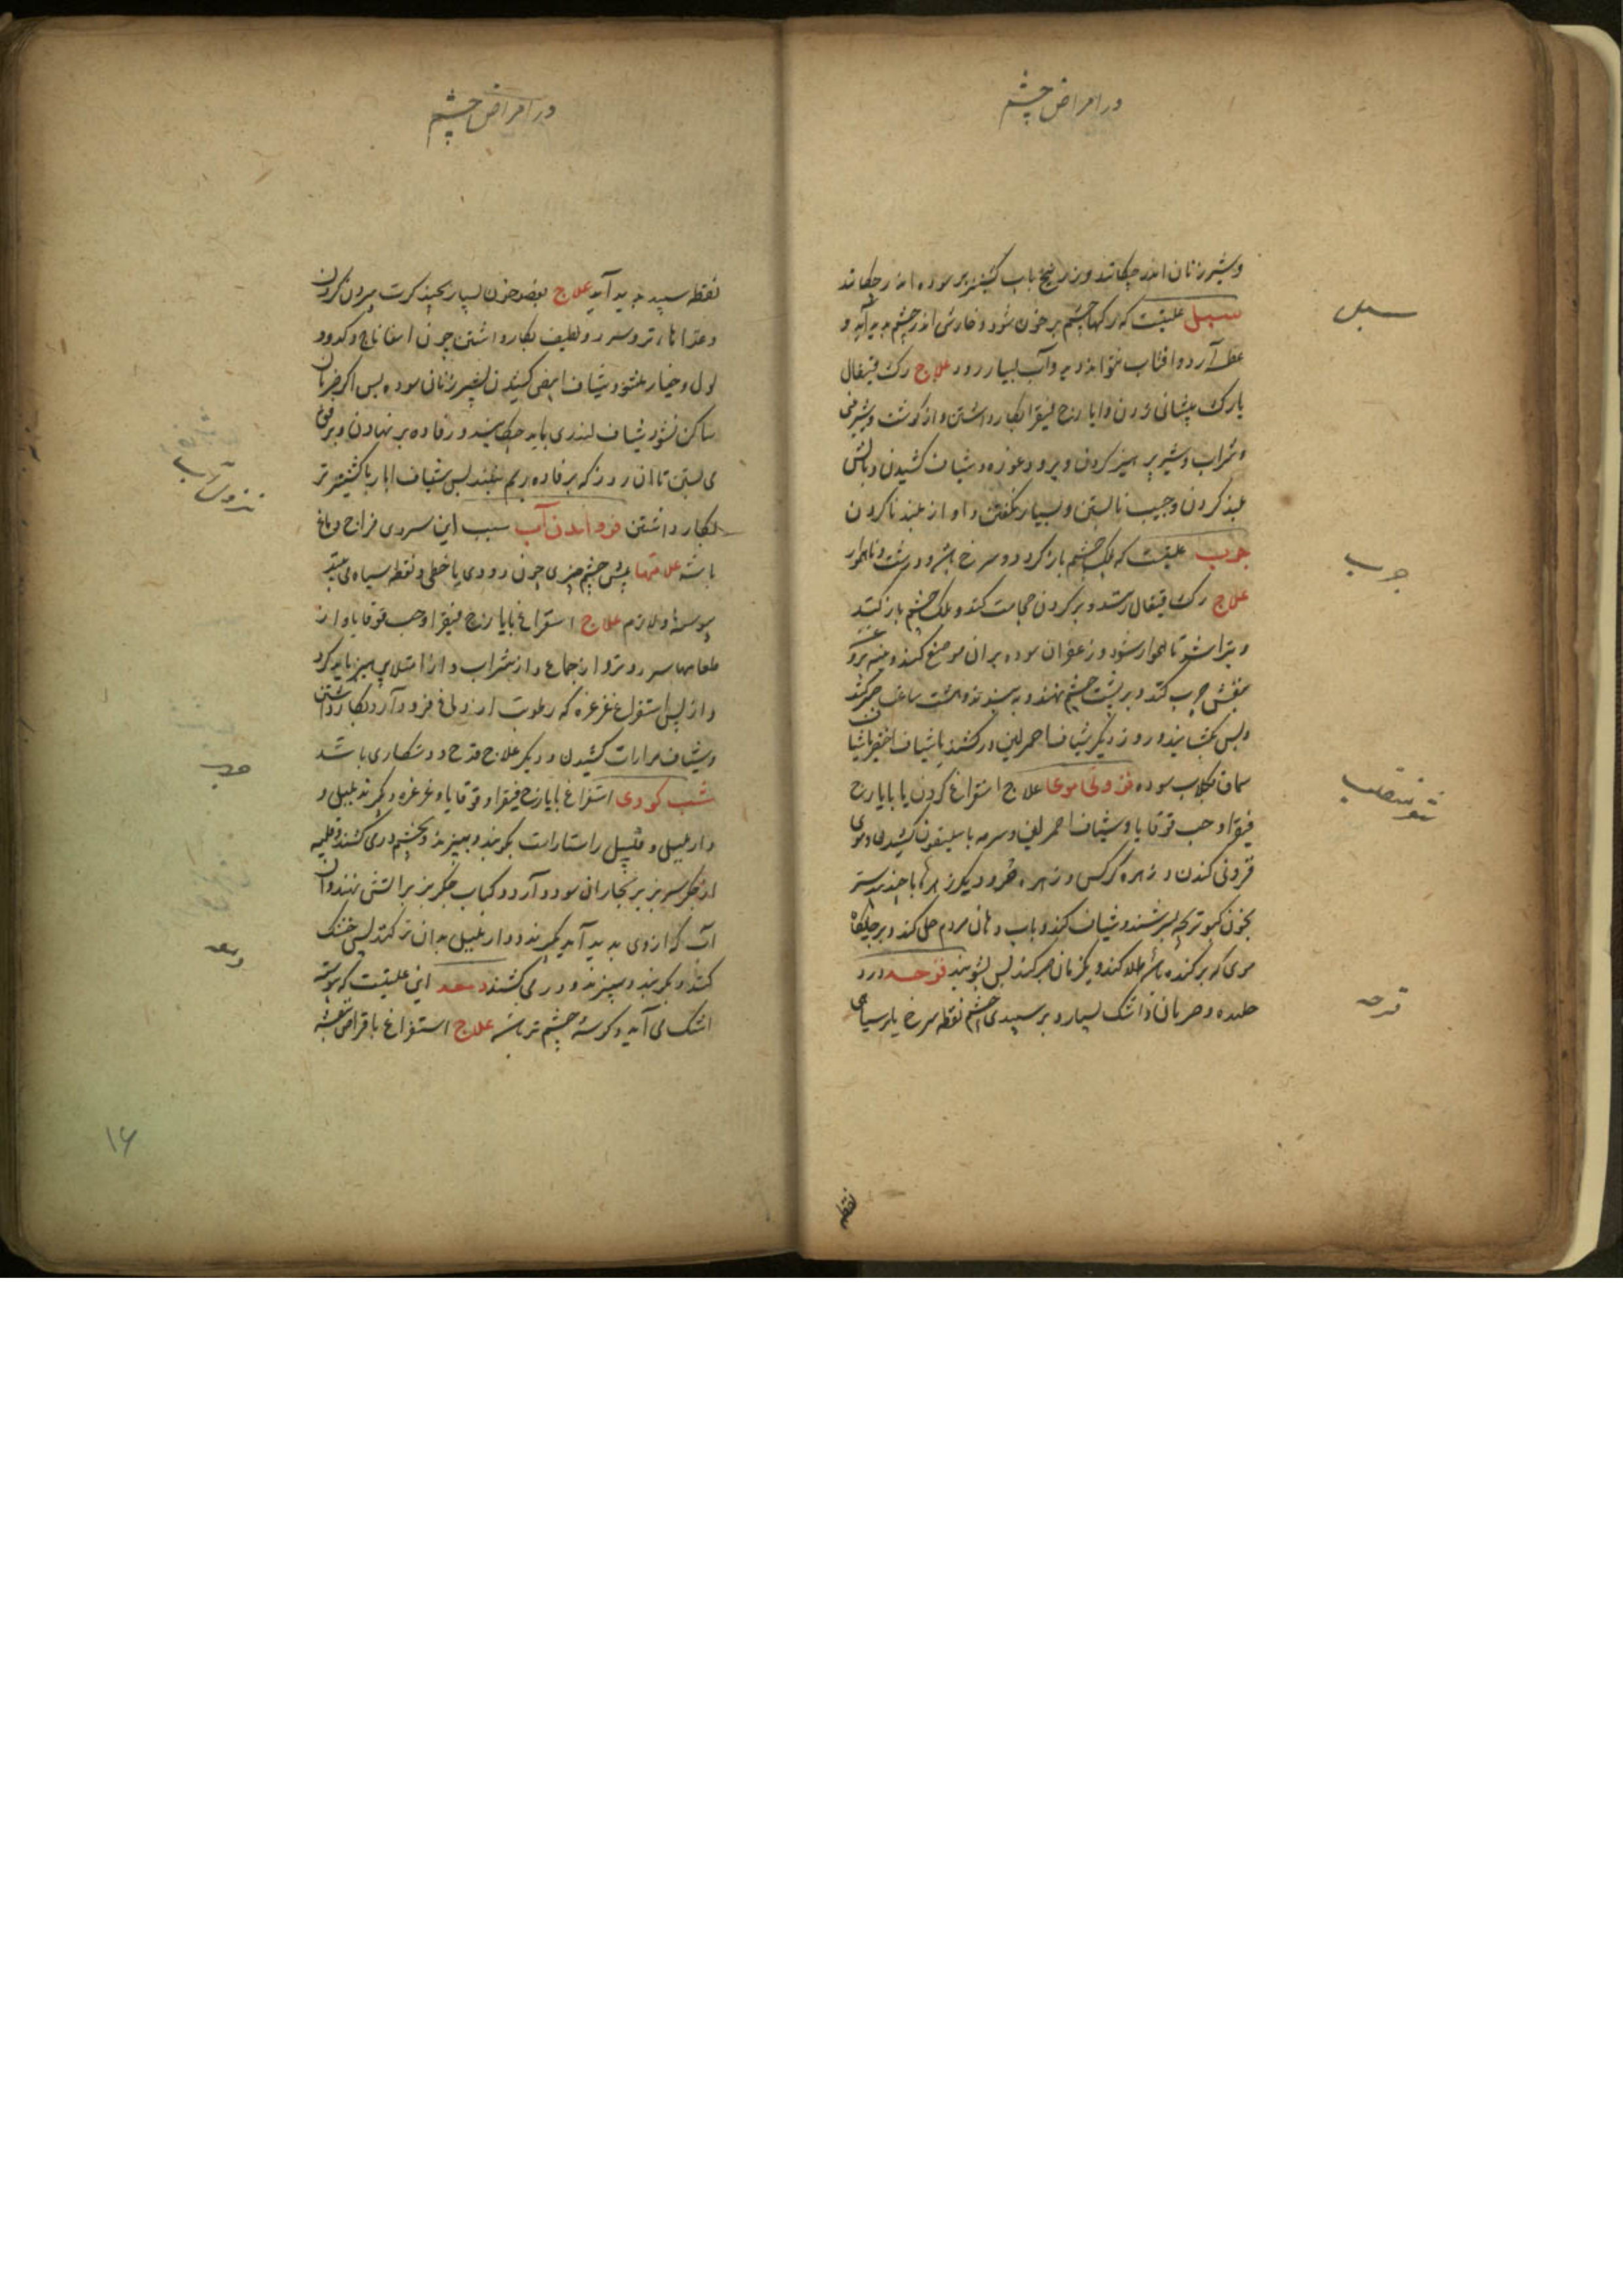 در امراض چشم
و شیر زنان اندر چکانند و زرنیخ باب کشنیز تر سوده اندر چکانند
سبل علتیست که رکها چشم پر خون شود و خارش اندر چشم پدید آید و
عطسه آرد و افتاب نتواند دید و آب بسیار رود علاج رک قیفال
یا رک پیشانی زدن و ایارج فیقرا بکار داشتن و از کوشت و شیرینی
و شراب و شیر پرهیز کردن و برود غوره و شیاف کشیدن و بالش
بلند کردن و جیب نابستن و بسیار نکفتن و اواز بلند ناکردن
جرب علتیست که پلک چشم باز کردد و سرخ باشد و درشت و ناهموار
علاج رک قیفال زنند و بر کردن حجامت کنند و پلک چشم باز کنند
و بتراشند تا هموار شود و زعفران سوده بران موضع کنند و
بنفش چرب کنند و بر پشت چشم نهند و به بندند و هشت ساعت صبر کنند
و پس بکشایند و روز دیکر شیاف احمر لین درکشند یا شیاف اخضر یا شیاف
سماق بکلاب سوده فزونی موی علاج استفراغ کردن با ایارج
فیقرا و حب قوقایا و شیاف احمر لین و سرمه باسلیقون کشیدن و موی
فزونی کندن و زهره کرکس و زهره و دیکر زهرها با جندبیدستر
بخون کبوتر بچه بسرشند و شیاف کنند و باب دهان مردم حل کنند و بر جایکاه
موی که برکنده باشد طلا کنند و یکزمان صبر کنند پس بشویند قرحه درد
خلنده و ضربان و اشک بسیار و بر سپیدی چشم نقطه سرخ یا بر سیاهی
نقطه
سبل
جرب
شعر منقلب
قرحه
در امراض چشم
نقطه سپید پدید آید علاج بفصد خون بسیار بچند کرت بیرون کردن
و غذاهای تر و سرد و لطیف بکار داشتن چون اسفاناج و کدو و
لول و خیار و شیاف ابیض کشیدن بشیر زنان سوده پس اکر ضربان
ساکن نشود شیاف کندری باید چکانید و رفاده بر نهادن و برفق
می بستن تا ان روز که بر رفاده ریم نبینند پس شیاف ابار با کشنیز تر
بکار داشتن فرو امدن آب سبب این سردی مزاج دماغ
باشد علامتها پیش چشم چیزی چون دودی یا خطی و نقطه سیاه می بیند
پیوسته و لازم علاج استفراغ بایارج فیقرا و حب قوقایا و از
طعامها سرد و تر و از جماع و از شراب و از امتلا پرهیز باید کرد
و از پس استفراغ غرغره که رطوبت از وی فرود آرد بکار داشتن
و شیاف مرارات کشیدن و دیکر علاج قدح و دستکاری باشد
شب کوری استفراغ بایارج فیقرا و قوقایا و غرغره و کیرند پلپل و
دارپلپل و قنبیل راستاراست بکوبند و ببیزند و بچشم در می کشند و
از جکر بز بر بخاران سود دارد و کباب جکر بز بر اتش نهند و ان
آب که ازوی پدید آید بکیرند و دارپلپل بدان تر کنند پس خشک
کنند و بکوبند و ببیزند و در می کشند دمعه این علتیست که پیوسته
اشک می آید و کوشه چشم تر باشد علاج استفراغ باقراض بنفشه
نزول آب
دمعه
۱۶